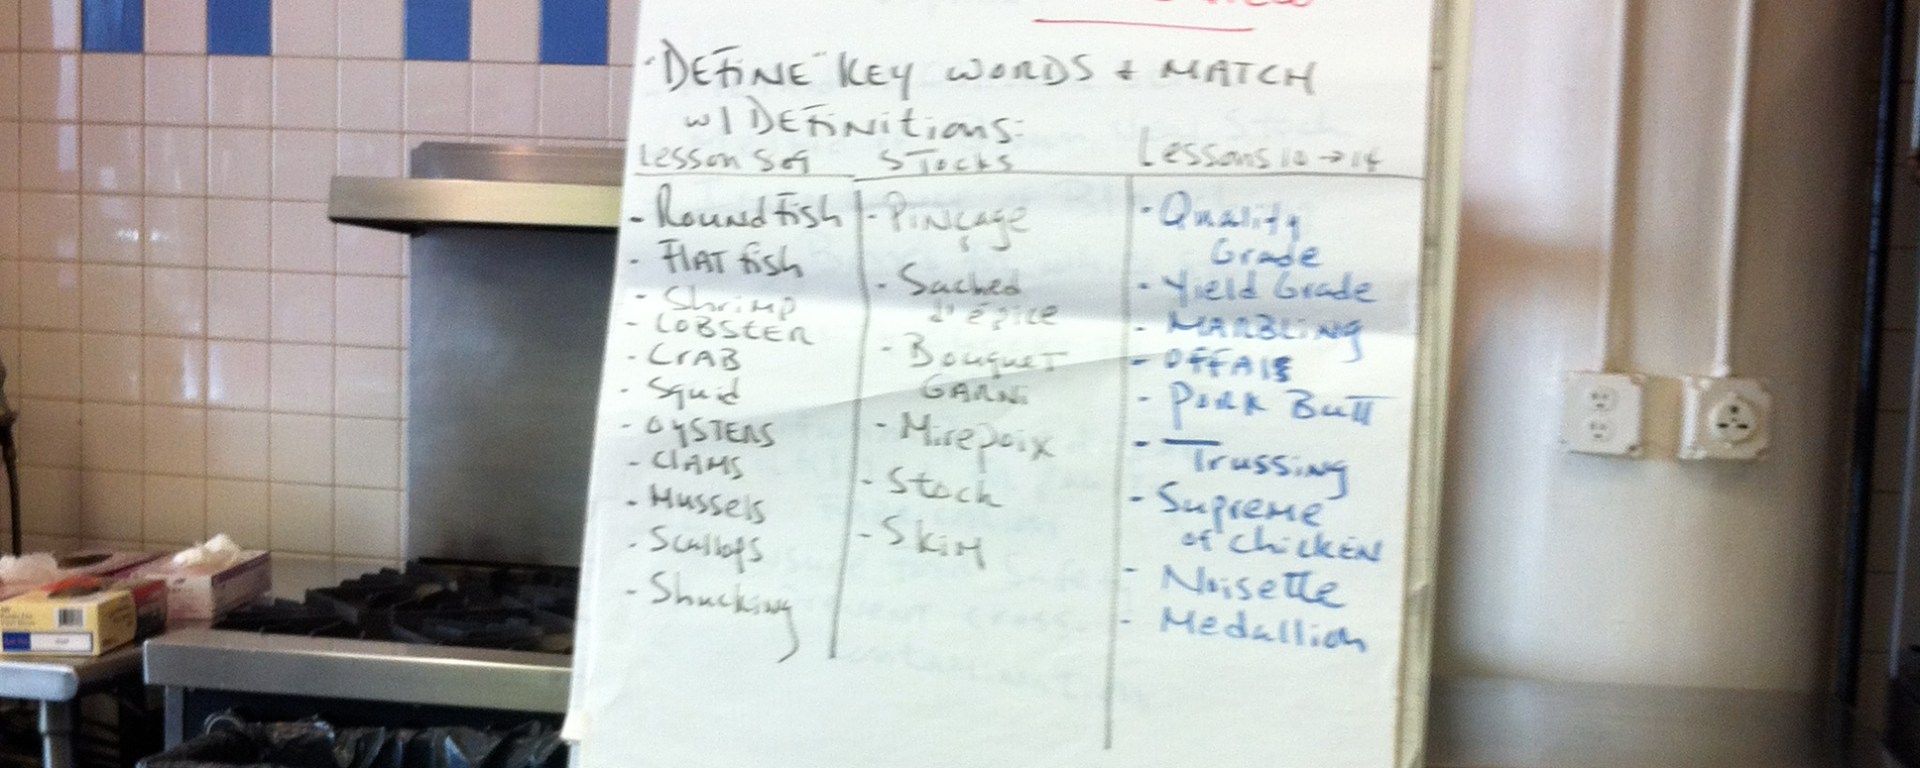 "DEFINE" KEY WORDS + MATCH
w/ DEFINITIONS:
Lesson 5 of 9
- Round fish
- FLAT fish
- Shrimp
- LOBSTER
- CRAB
- Squid
- OYSTERS
- CLAMS
- Mussels
- Scallops
- Shucking
STOCKS
- Pinçage
- Sached
d'épice
- Bouquet
GARNI
- Mirepoix
- Stock
- Skim
Lessons 10 → 14
- Quality
Grade
- Yield Grade
- MARBLING
- OFFAlS
- Pork Butt
- Trussing
- Supreme
of chicken
- Noisette
- Medallion